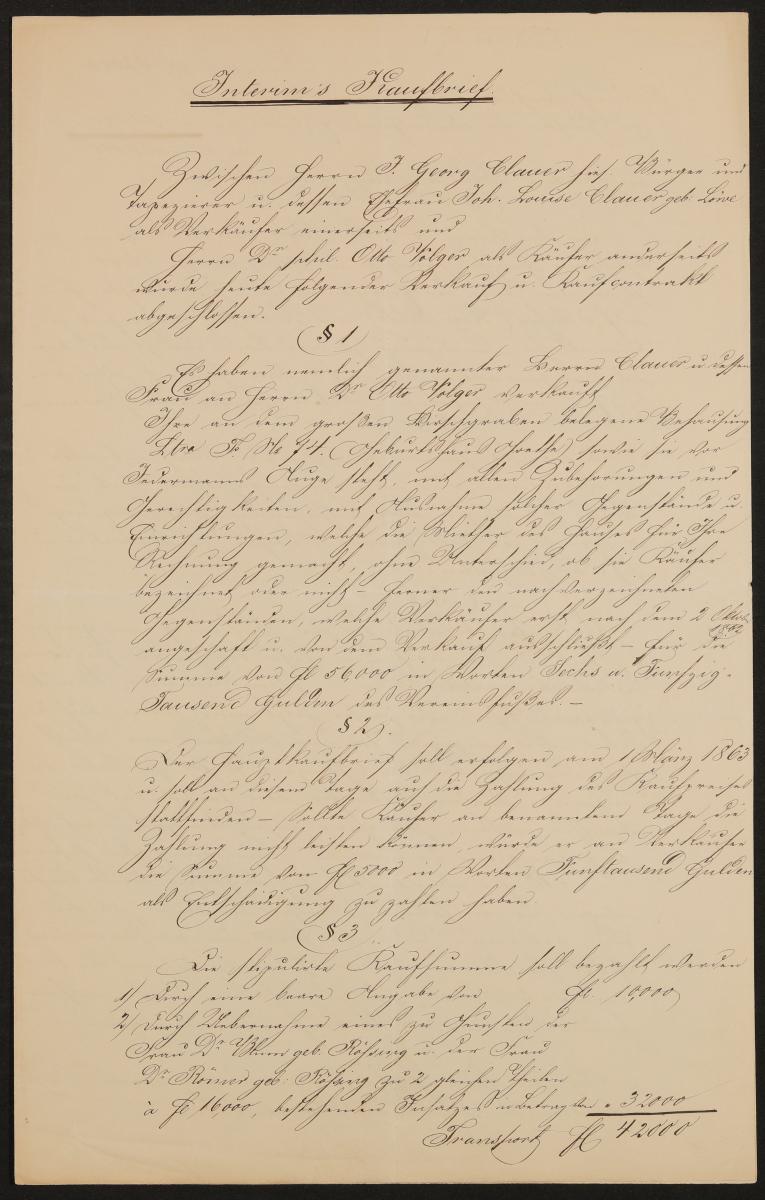 Interim's Kaufbrief.
Zwischen Herrn J. Georg Clauer hies. Bürger und
Tapezierer u. dessen Ehefrau Joh. Louise Clauer geb. Löwe
als Verkäufer einerseits und
Herrn Dr phil. Otto Volger als Käufer anderseits
wurde heute folgender Verkauf u. Kaufcontrakt
abgeschlossen.
§ 1
Es haben nemlich genannter Herrn Clauer u. dessen
Frau an Herrn Dr Otto Volger verkauft
Ihre an dem großen Hirschgraben belegene Behausung
Litra F. No 74. (Geburtshaus Goethe) sowie sie vor
Jedermanns Auge steht, mit allen Zubehörungen und
Gerechtigkeiten, mit Ausnahme solcher Gegenstände u.
Einrichtungen, welche die Miether des Hauses für Ihre
Rechnung gemacht, ohne Unterschied, ob sie Käufer
bezeichnet oder nicht – ferner den nachverzeichneten
Gegenständen, welche Verkäufer erst nach dem 2 Oktob.
1862
angeschafft u. von dem Verkauf ausschließt – für die
Summe von fl 56,000 in Worten Sechs u. Funfzig-
Tausend Gulden des Vereinsfußes. –
§ 2.
Der Hauptkaufbrief soll erfolgen am 1 März 1863
u. soll an diesem Tage auch die Zahlung des Kaufpreises
stattfinden – Sollte Käufer an benanntem Tage die
Zahlung nicht leisten können, würde er an Verkäufer
die Summe von fl 5000 in Worten Fünftausend Gulden
als Entschädigung zu zahlen haben.
§ 3
Die stipulirte Kaufsumme soll bezahlt werden
1) Durch eine baare Angabe von fl. 10,000
2) Durch Uebernahme eines zu Gunsten der
Frau Dr geb. Rössing u. der Frau
Dr Römer geb. Rössing zu 2 gleichen Theilen
à fl 16,000, bestehenden Insatzes im Betrag von " 32000
Transport fl 42000